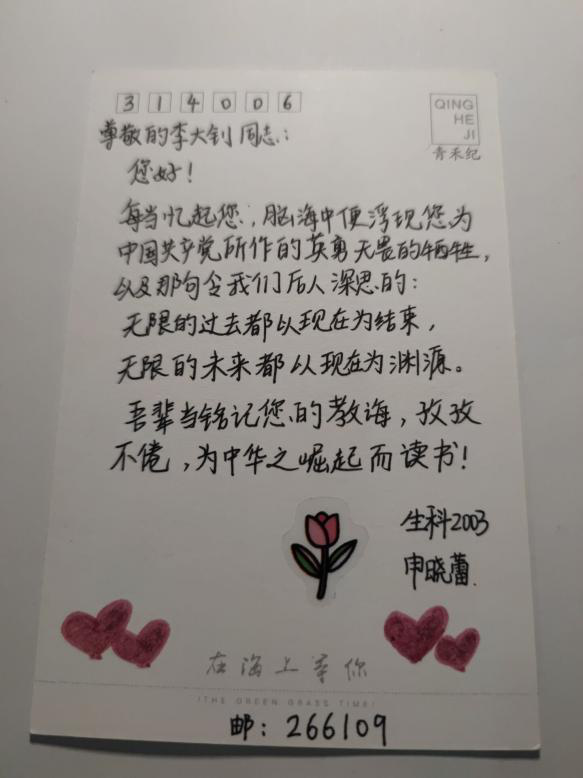 314006
QING
HE
JI
青禾纪
尊敬的李大钊同志:
您好!
每当忆起您,脑海中便浮现您为
中国共产党所作的英勇无畏的牺牲,
以及那句令我们后人深思的:
无限的过去都以现在为结束,
无限的未来都以现在为渊源。
吾辈当铭记您的教诲,孜孜
不倦,为中华之崛起而读书!
生科2003
申晓蕾
在海上等你
(THE GREEN GRASS TIME)
邮:266109